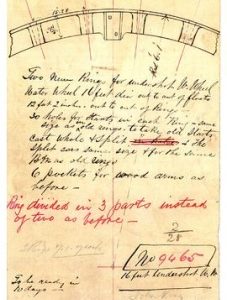 Two New Rings for undershot W. Wheel
Water Wheel 16 feet dia out to out of floats
12 feet 2 inches out to out of Ring
30 holes for starts in each Ring – same
size as old rings to take old starts
cast whole & split & the
split ears same size & for the same
bolts as old rings
6 pockets for wood arms as
before –
Ring divided in 3 parts instead
of two as before –
2/28
No 9465
16 feet undershot W. W.
To be ready in
10 days –